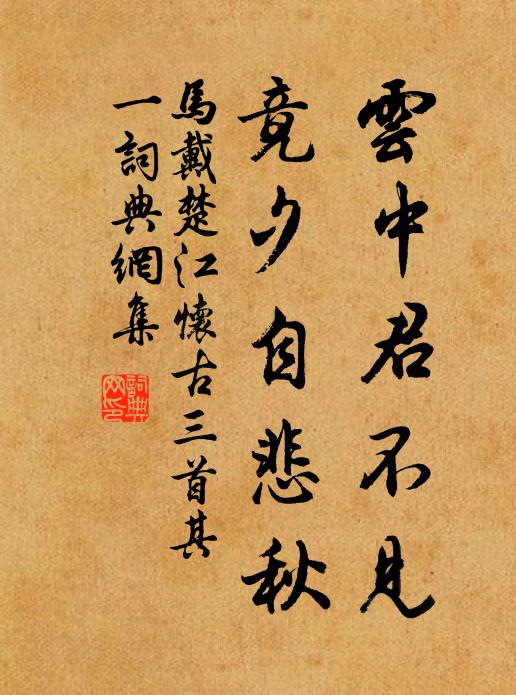 雲中君不見
竟夕自悲秋
馬戴楚江懷古三首其
一詞典網集
詞典
网印